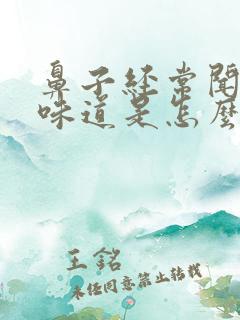 鼻子经常闻
味道是怎么
王銘
未经同意禁止转载